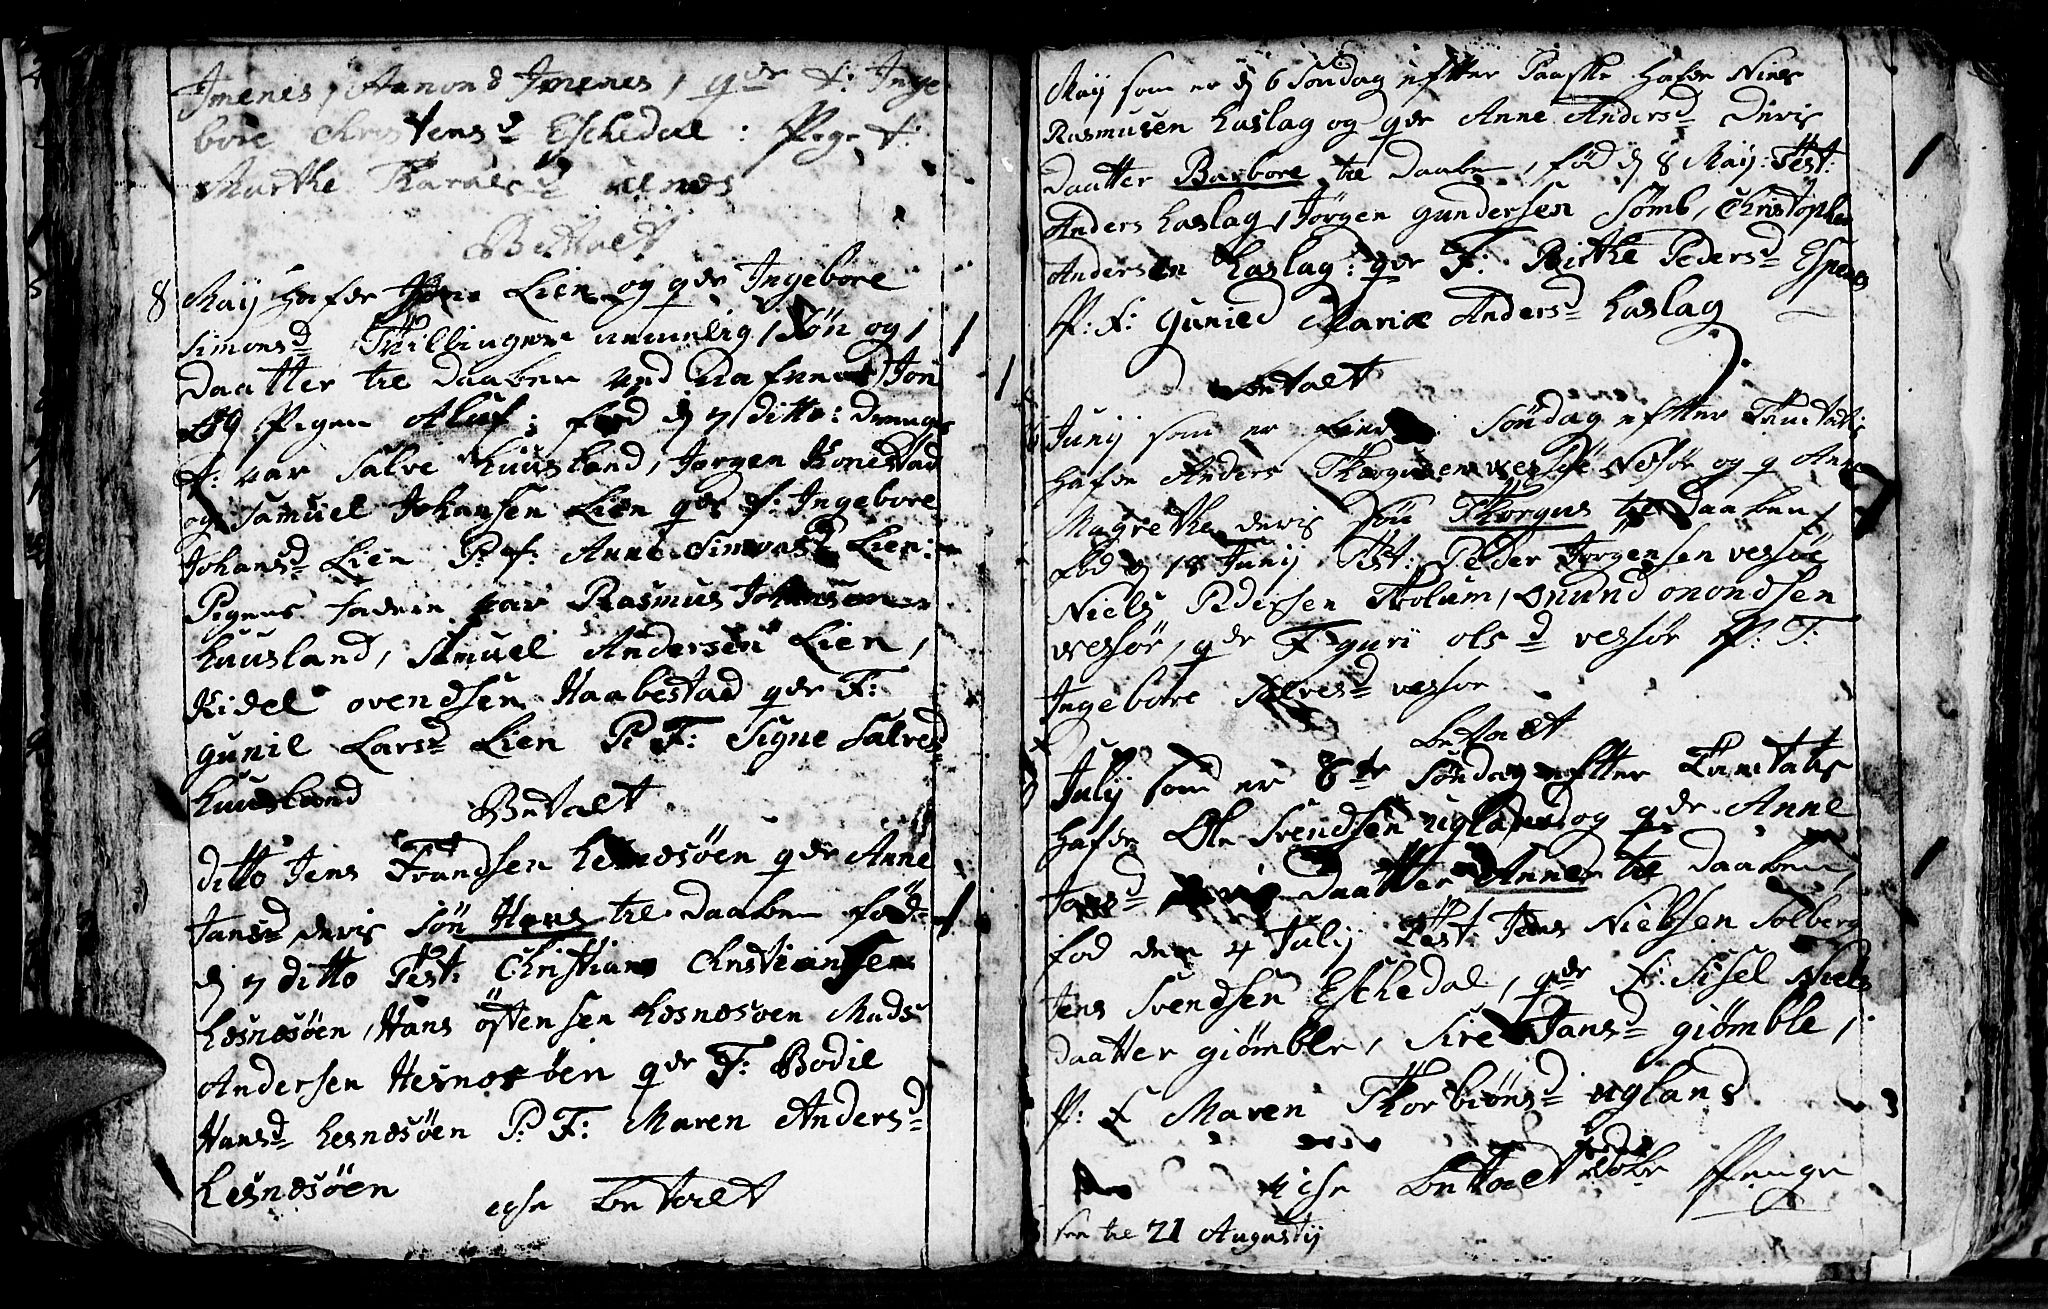 Imenes, Aanond Imenes, qde F: Inge
bore Christensd Eschedal: Pige F:
Marthe
Betalt
8 Maij hafde Lien og qde Ingebore
Simonsd Tvillinger nemmlig, Søn og
Daatter til daaben ved Nafvne Jon
og Pigen Aluf; fød d 7 ditto: drenges
F: var Salve Kuusland, Jørgen
og Samuel Johansen Lien qde F: Ingebore
Johansd Lien P: F: Anne Simonsd Lien:
Pigens faddere var Rasmus Johansen
Kuusland, Samuel Andersen Lien,
Kidel ovendsen Haabestad qde F:
Gunil Larsd Lien P: F: Signe Salvesd
Kuusland Betalt
ditto Jens Frandsen Hesnesøen qde Anne
Jansd deris Søn Hans til daaben fød
d 7 ditto Test: Christian Christiansen
Hesnesøen, Hans østensen Hesnesøen Mads
Andersen Hesnesøen qde F: Bodil
Hansd Hesnesøen P: F: Maren Andersd
Hesnesøen
Betalt
Maij som er d 6 Søndag efter Paaske hafde Niels
Rasmusen Haslag og qde Anne Andersd Deris
daatter Barbore til daaben, fød d 8 Maij: Test:
Anders Haslag, Jørgen Gundersen Sømb, Christopher
Andersen Haslag: qde F: Birthe Pedersd Espenes
P: F: Gunild Mariæ Andersd Haslag
Betalt
Junij som er Søndag efter Trinitatis
hafde Anders Thorgusen Vessøe og q Anne
Magrethe deris Søn Thorgus til daaben
fød d 18 Junij Test: Peder Jørgensen Vessøe
Niels Pedersen Tholum, Onund Onondsen
Vessør, qde F Guri Olsd Vessør P: F:
Ingebore Salvesd Vessør
Betalt
Julij som er 8te Søndag efter Trinitatis
hafde Ole Svendsen Ugland og qde Anne
Jansd daatter Anne til daaben,
fød den 4 Julij Test: Jens Nielssen Solberg
Jens Svendsen Eschedal, qde F: Sisel Niels
daatter Giømble, Sire Jansd Giømble,
P: F Maren Thorbiønsd Ugland
Betalt Penge
til 21 Augustij